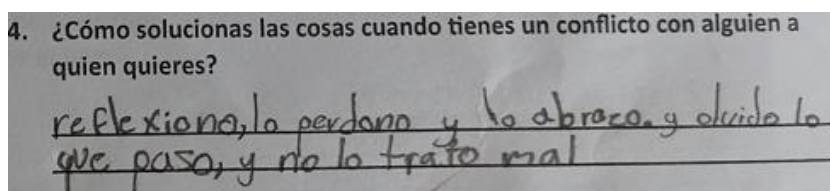 4. ¿Cómo solucionas las cosas cuando tienes un conflicto con alguien a
quien quieres?
reflexiono, lo perdono y lo abrazo. y olvido lo
que paso, y no lo trato mal